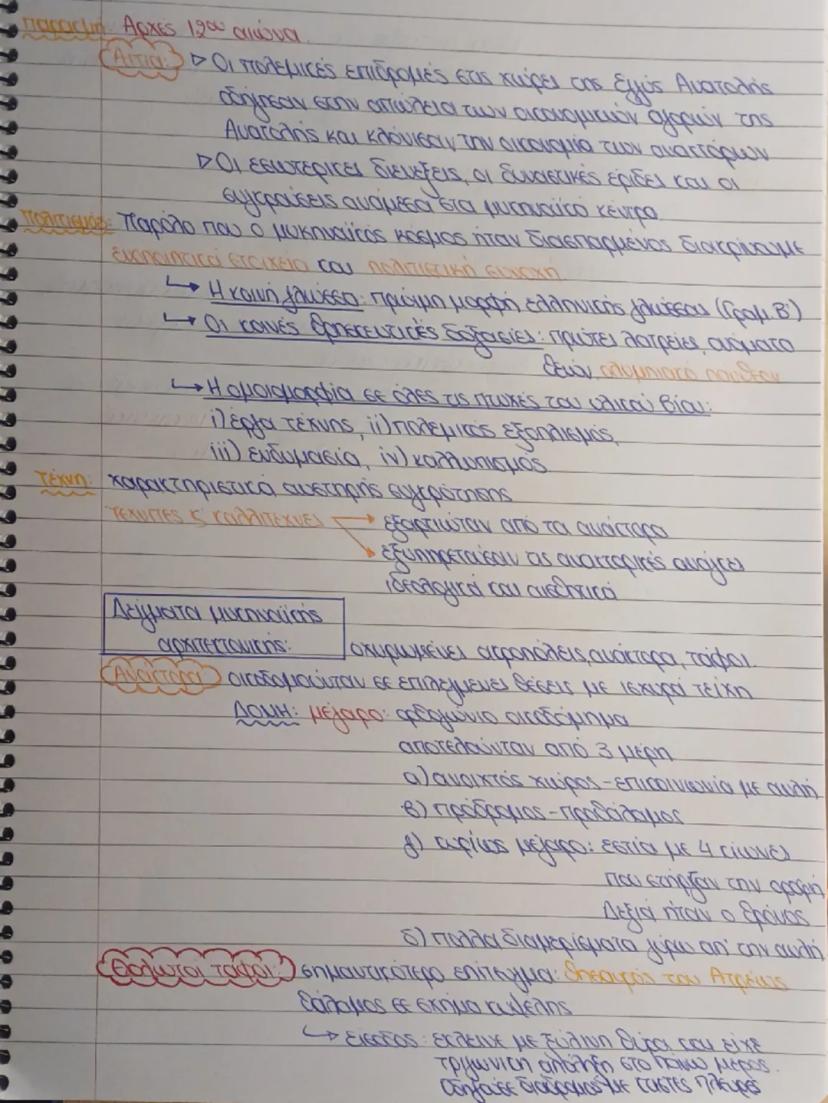 Παρακμή: Αρχές 12ου αιώνα.
Αίτια: ▷ Οι πολεμικές επιδρομές στις χώρες της Εγγύς Ανατολής
οδήγησαν στην απώλεια των οικονομικών αγορών της
Ανατολής και κλόνισαν την οικονομία των ανακτόρων
▷ Οι εσωτερικές διενέξεις, οι δυναστικές έριδες και οι
συγκρούσεις ανάμεσα στα μυκηναϊκά κέντρα
Πολιτισμός: Παρόλο που ο μυκηναϊκός κόσμος ήταν διασπαρμένος διακρίνουμε
ενοποιητικά στοιχεία και πολιτιστική συνοχή
↳ Η κοινή γλώσσα: πρώιμη μορφή ελληνικής γλώσσας (Γραμ. Β)
↳ Οι κοινές θρησκευτικές δοξασίες: πρώτες λατρείες, ονόματα
θεών, ολυμπιακό πάνθεον
↳ Η ομοιομορφία σε όλες τις πτυχές του υλικού βίου:
i) έργα τέχνης, ii) πολεμικός εξοπλισμός,
iii) ενδυμασία, iv) καλλωπισμός
Τέχνη: χαρακτηριστικά αυστηρής συγκρότησης
τεχνίτες ς καλλιτέχνες → εξαρτιώταν από τα ανάκτορα
→ εξυπηρετούσαν τις ανακτορικές ανάγκες
ιδεολογικά και αισθητικά
Δείγματα μυκηναϊκής
αρχιτεκτονικής: οχυρωμένες ακροπόλεις, ανάκτορα, τάφοι.
Ανάκτορα: οικοδομούνταν σε επιλεγμένες θέσεις με ισχυρά τείχη
ΔΟΜΗ: μέγαρο: ορθογώνιο οικοδόμημα
αποτελούνταν από 3 μέρη
α) ανοιχτός χώρος - επικοινωνία με αυλή
β) πρόδρομος - προθάλαμος
γ) κυρίως μέγαρο: εστία με 4 κίονες
που στήριζαν την οροφή
Δεξιά ήταν ο θρόνος
δ) πολλά διαμερίσματα γύρω απ' την αυλή
Θολωτοί τάφοι: σημαντικότερο επίτευγμα: θησαυρός του Ατρέως
θάλαμος σε σχήμα κυψέλης
↳ είσοδος: έκλεινε με ξύλινη θύρα και είχε
τριγωνική απόληξη στο πάνω μέρος.
Οδηγούσε διάδρομος με κτιστές πλευρές